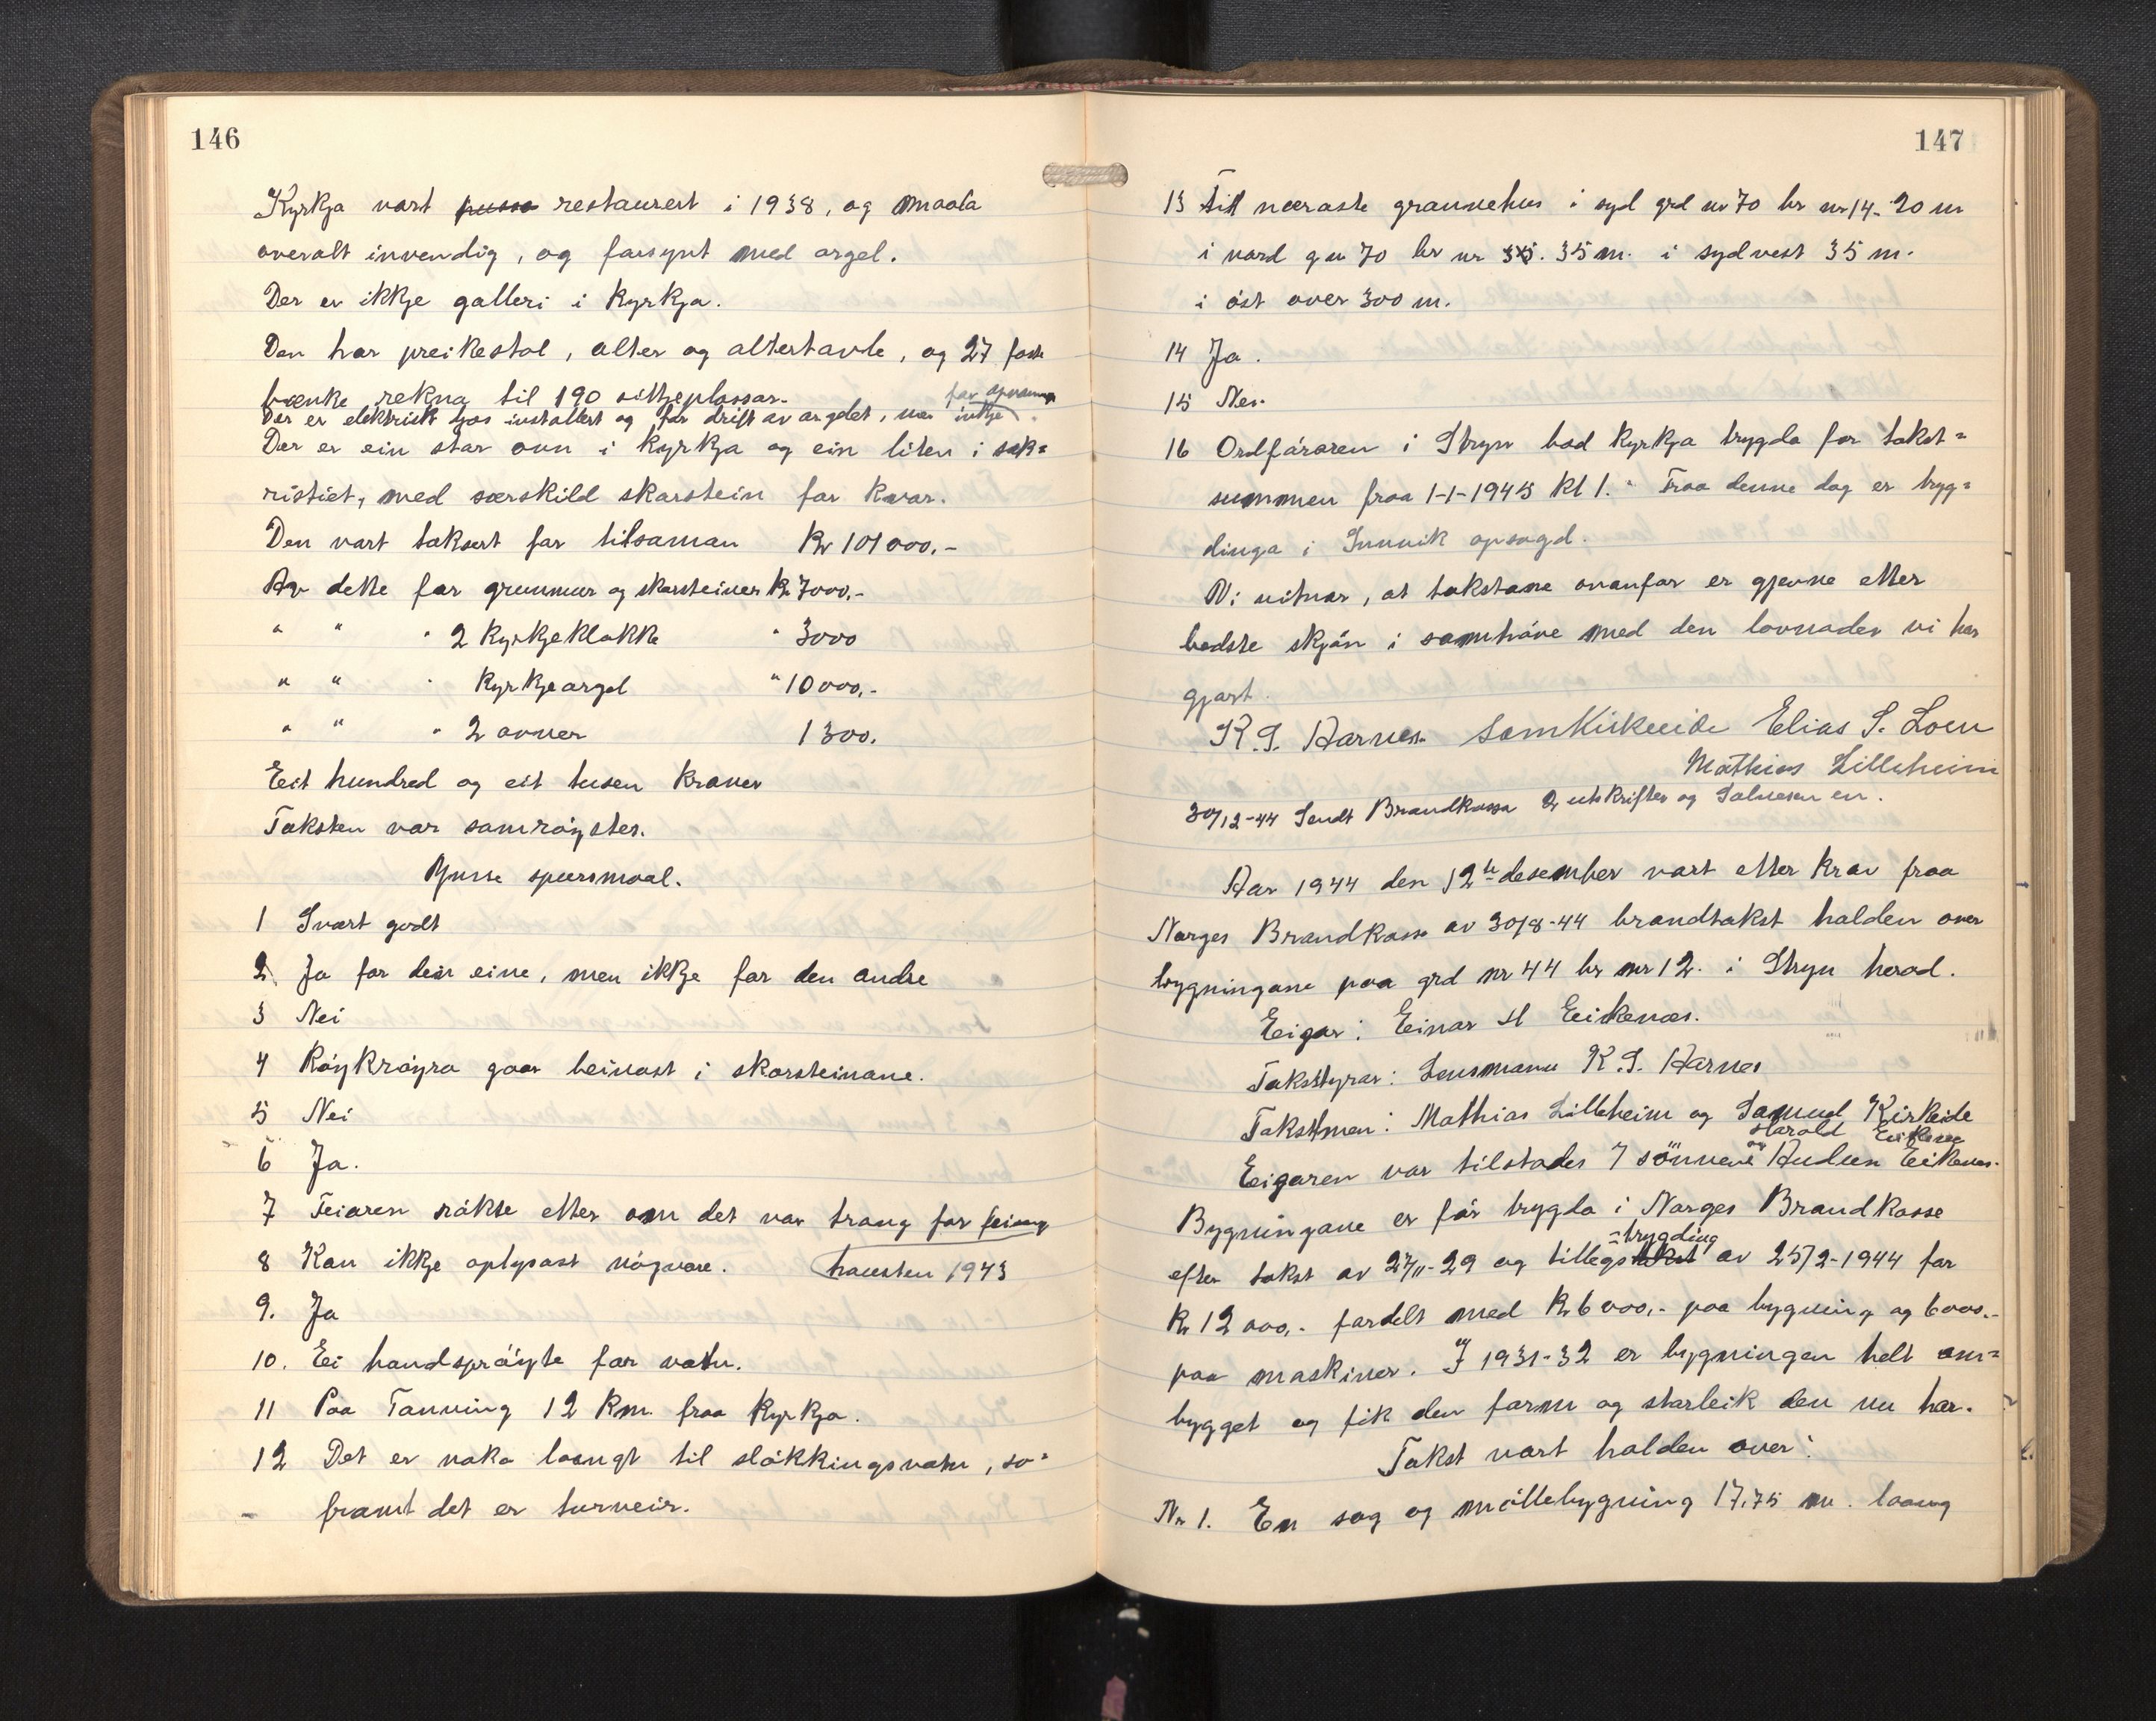 146
Kyrkja vart restaurert i 1938, og maala
overalt invendig, og forsynt med orgel.
Der er ikkje galleri i Kyrkja.
Den har preikestol, alter og altertavle, og 27 faste
bænke rekna til 190 sitjeplassar.
for
Der er elektrisk ljos installert og for drift av orgelet, men inkje
Der er ein stor ovn i Kyrkja og ein liten i sak=
ristiet, med særskild skorstein for kvar.
Den vart taksert for tilsaman Kr 101000.-
Av dette for grunnmur og skorsteiner Kr 7000.-
" " " 2 Kyrkjeklokke " 3000
" " " Kyrkjeorgel " 10000.-
" " " 2 ovner 1300.
Eit hundred og eit tusen Kroner
Taksten var samrøystes.
Ymse spursmaal.
1 Svært godt
2. Ja for den eine, men ikkje for den andre
3 Nei
4 Røykrøyra gaar beinast i skorsteinane.
5 Nei
6 Ja.
7 Feiaren søkte etter om det var trong for feiing
hausten 1943
8 Kan ikkje oplysast nøgvare.
9. Ja
10. Ei handsprøyte for vatn.
11 Paa Tonning 12 Km. fraa Kyrkja.
12 Det er noko langt til sløkkingsvatn, so=
framt det er turveir.
147
13 Til næraste grannehus i syd grd nr 70 br nr 14- 20 m
i nord g n 70 br nr 35. 35 m. i sydvest 35 m.
i øst over 300 m.
14 Ja.
15 Nei.
16 Ordføraren i Stryn bad Kyrkja trygda for takst=
summen fraa 1-1-1945 Kl 1. Fraa denne dag er tryg=
dinga i Innvik opsagd.
Vi vitnar, at takstane ovanfor er gjevne etter
bedste skjøn i samhøve med den lovnader vi har
gjort.
K. S. Aarnes Sam Kirkeeide Elias S. Loen
Mathias Lilleheim
30/12-44 Sendt Brandkassa 2 utskrifter og Salvesen en.
Aar 1944 den 12te desember vart etter krav fraa
Norges Brandkasse av 30/8-44 brandtakst halden over
bygningane paa grd nr 44 br nr 12. i Stryn herad.
Eigar: Einar H Eikenæs.
Takststyrar: Lensmann K. S. Aarnes
Takstmen: Mathias Lilleheim og Samuel Kirkeide
Harald Eikenæs
Eigaren var tilstades / sønnene og Audun Eikenæs.
Bygningane er før trygda i Norges Brandkasse
=trygding
efter takst av 27/11-29 og tillegstakst av 25/2-1944 for
Kr 12 000.- fordelt med Kr 6000.- paa bygning og 6000.-
paa maskiner. I 1931-32 er bygningen helt om=
bygget og fik den form og storleik den nu har.
Takst vart halden over:
Nr 1. En sag og møllebygning 17,75 m. laang